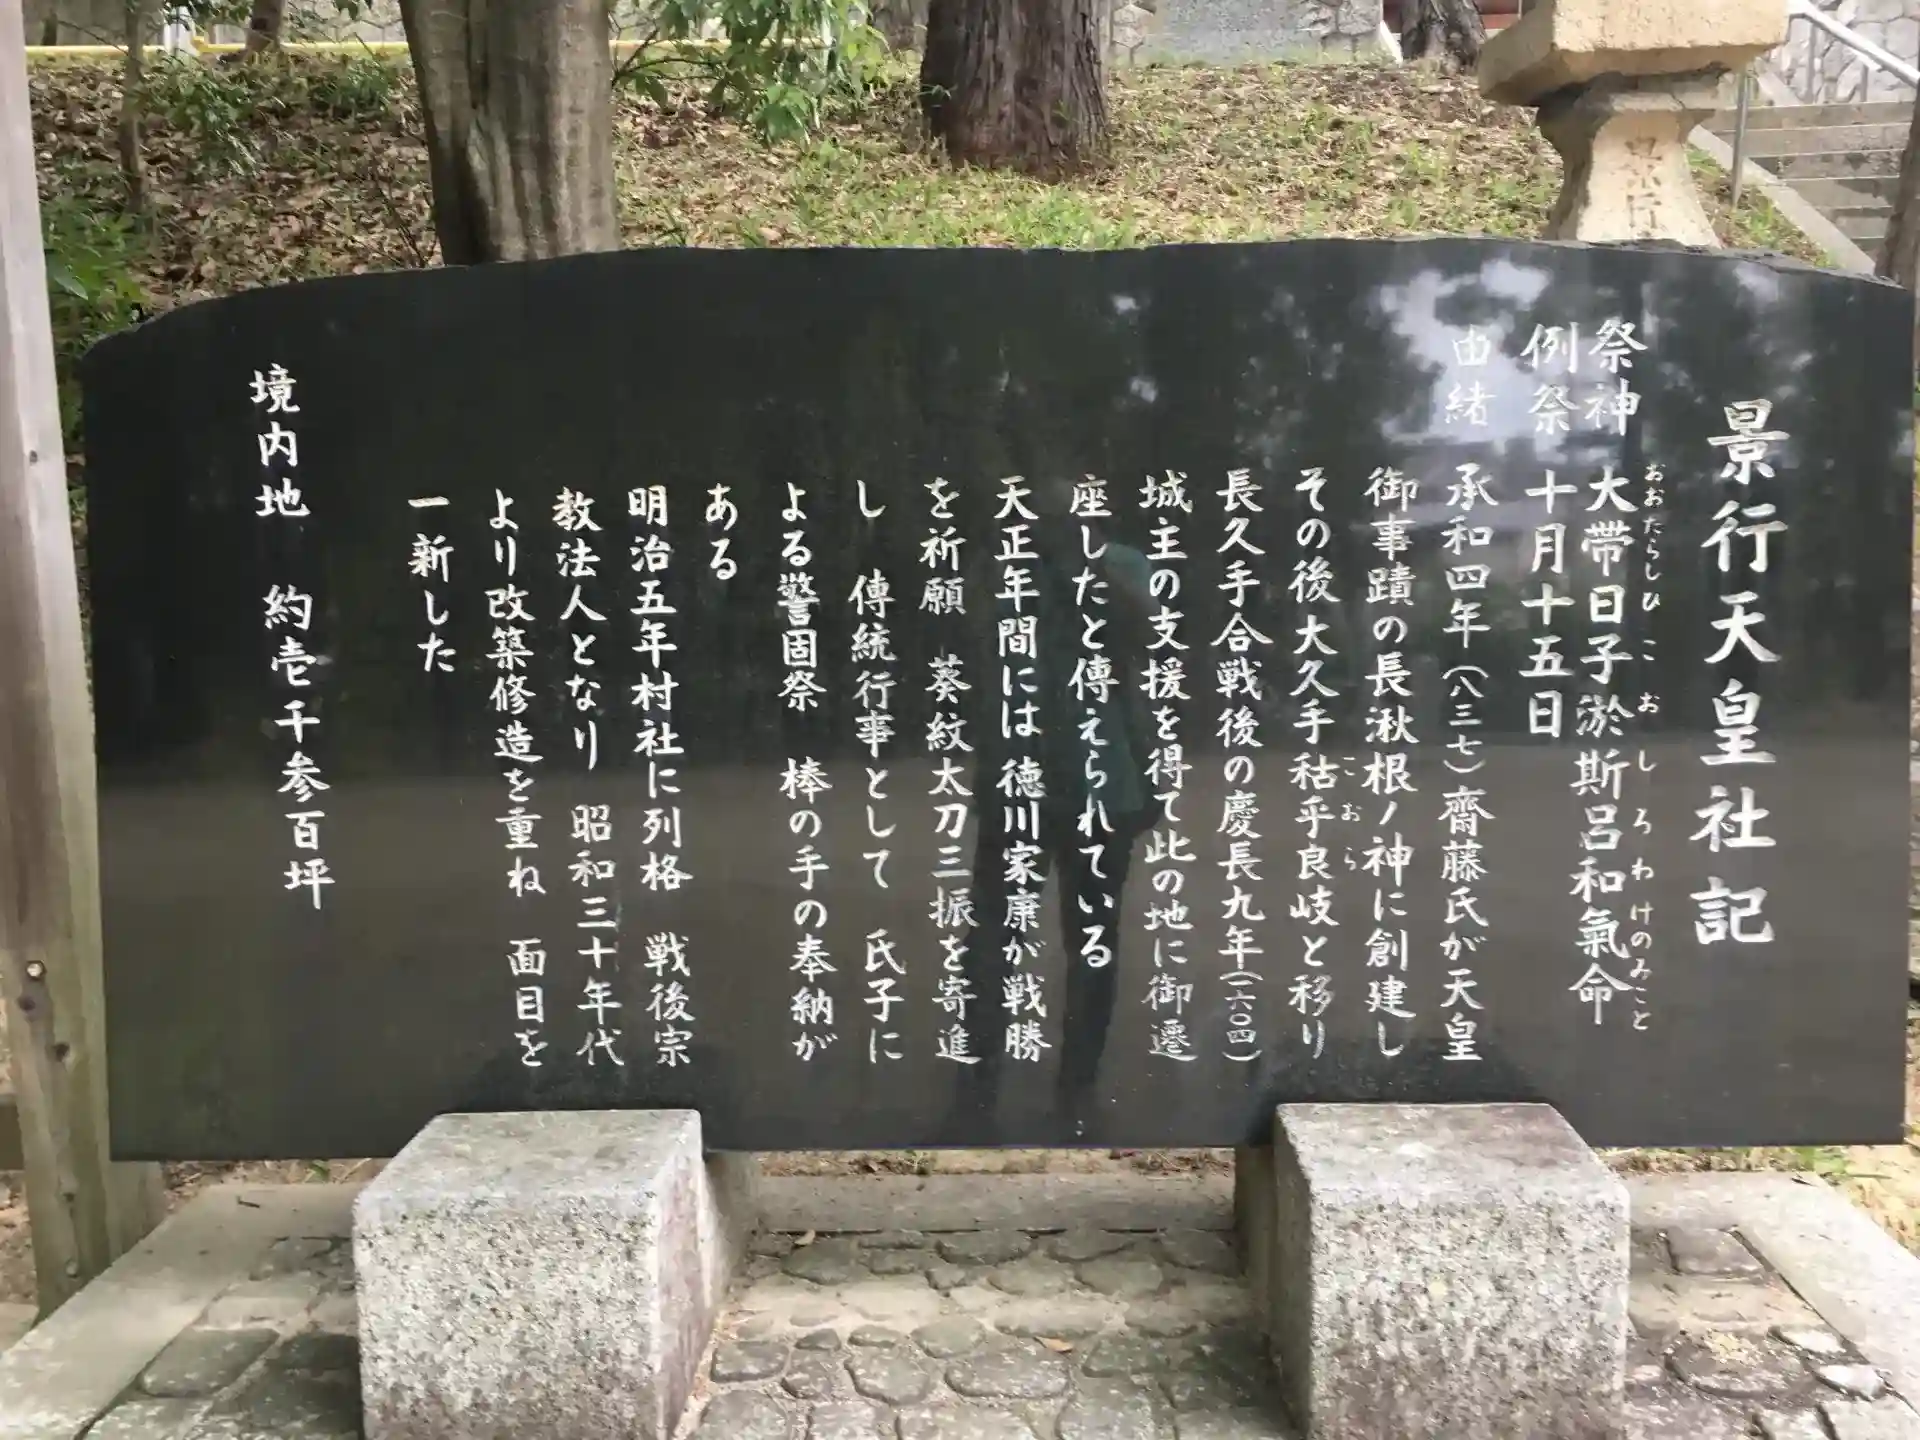 景行天皇社記
祭神 大帯日子淤斯呂和氣命
おおたらしひこおしろわけのみこと
例祭 十月十五日
由緒 承和四年(八三七)齋藤氏が天皇
御事蹟の長湫根ノ神に創建し
その後大久手秙乎良岐と移り
こおら
長久手合戦後の慶長九年(一六〇四)
城主の支援を得て此の地に御遷
座したと傳えられている
天正年間には徳川家康が戦勝
を祈願 葵紋太刀三振を寄進
し 傳統行事として 氏子に
よる警固祭 棒の手の奉納が
ある
明治五年村社に列格 戦後宗
教法人となり 昭和三十年代
より改築修造を重ね 面目を
一新した
境内地 約壱千参百坪